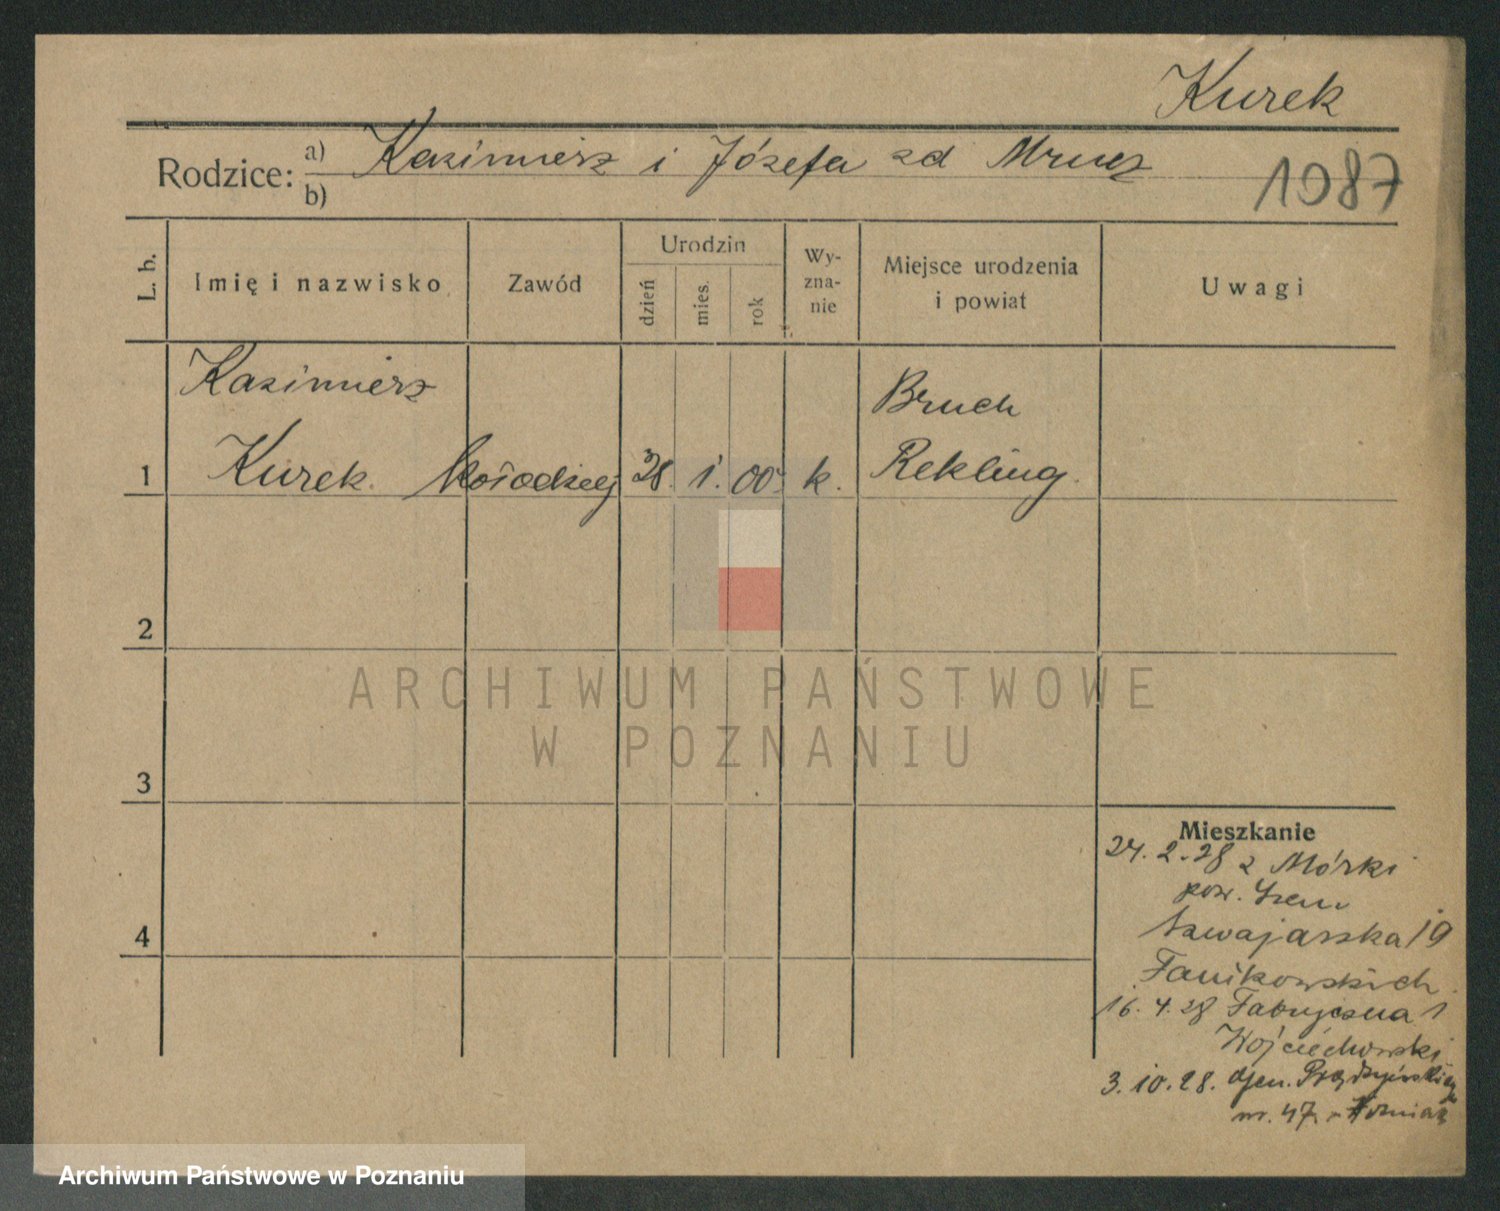 Kurek
Rodzice: a) Kazimierz i Józefa zd Mrucz
b)
1087
L. b.
Imię i nazwisko
Zawód
Urodzin
dzień
mies.
rok
Wy-
zna-
nie
Miejsce urodzenia
i powiat
Uwagi
Kazimierz
1 Kurek kołodziej 28. 1. 00 k.
Bruch
Rekling.
2
3
4
ARCHIWUM PAŃSTWOWE
W POZNANIU
Mieszkanie
24. 2. 28 z Mórki
pow. Szem
Szwajarska 19
Fanikowskich
16. 4. 28 Fabryczna 1
Wojciechowski
3. 10. 28. Gen. Prądzyńskiego
nr. 47
Archiwum Państwowe w Poznaniu